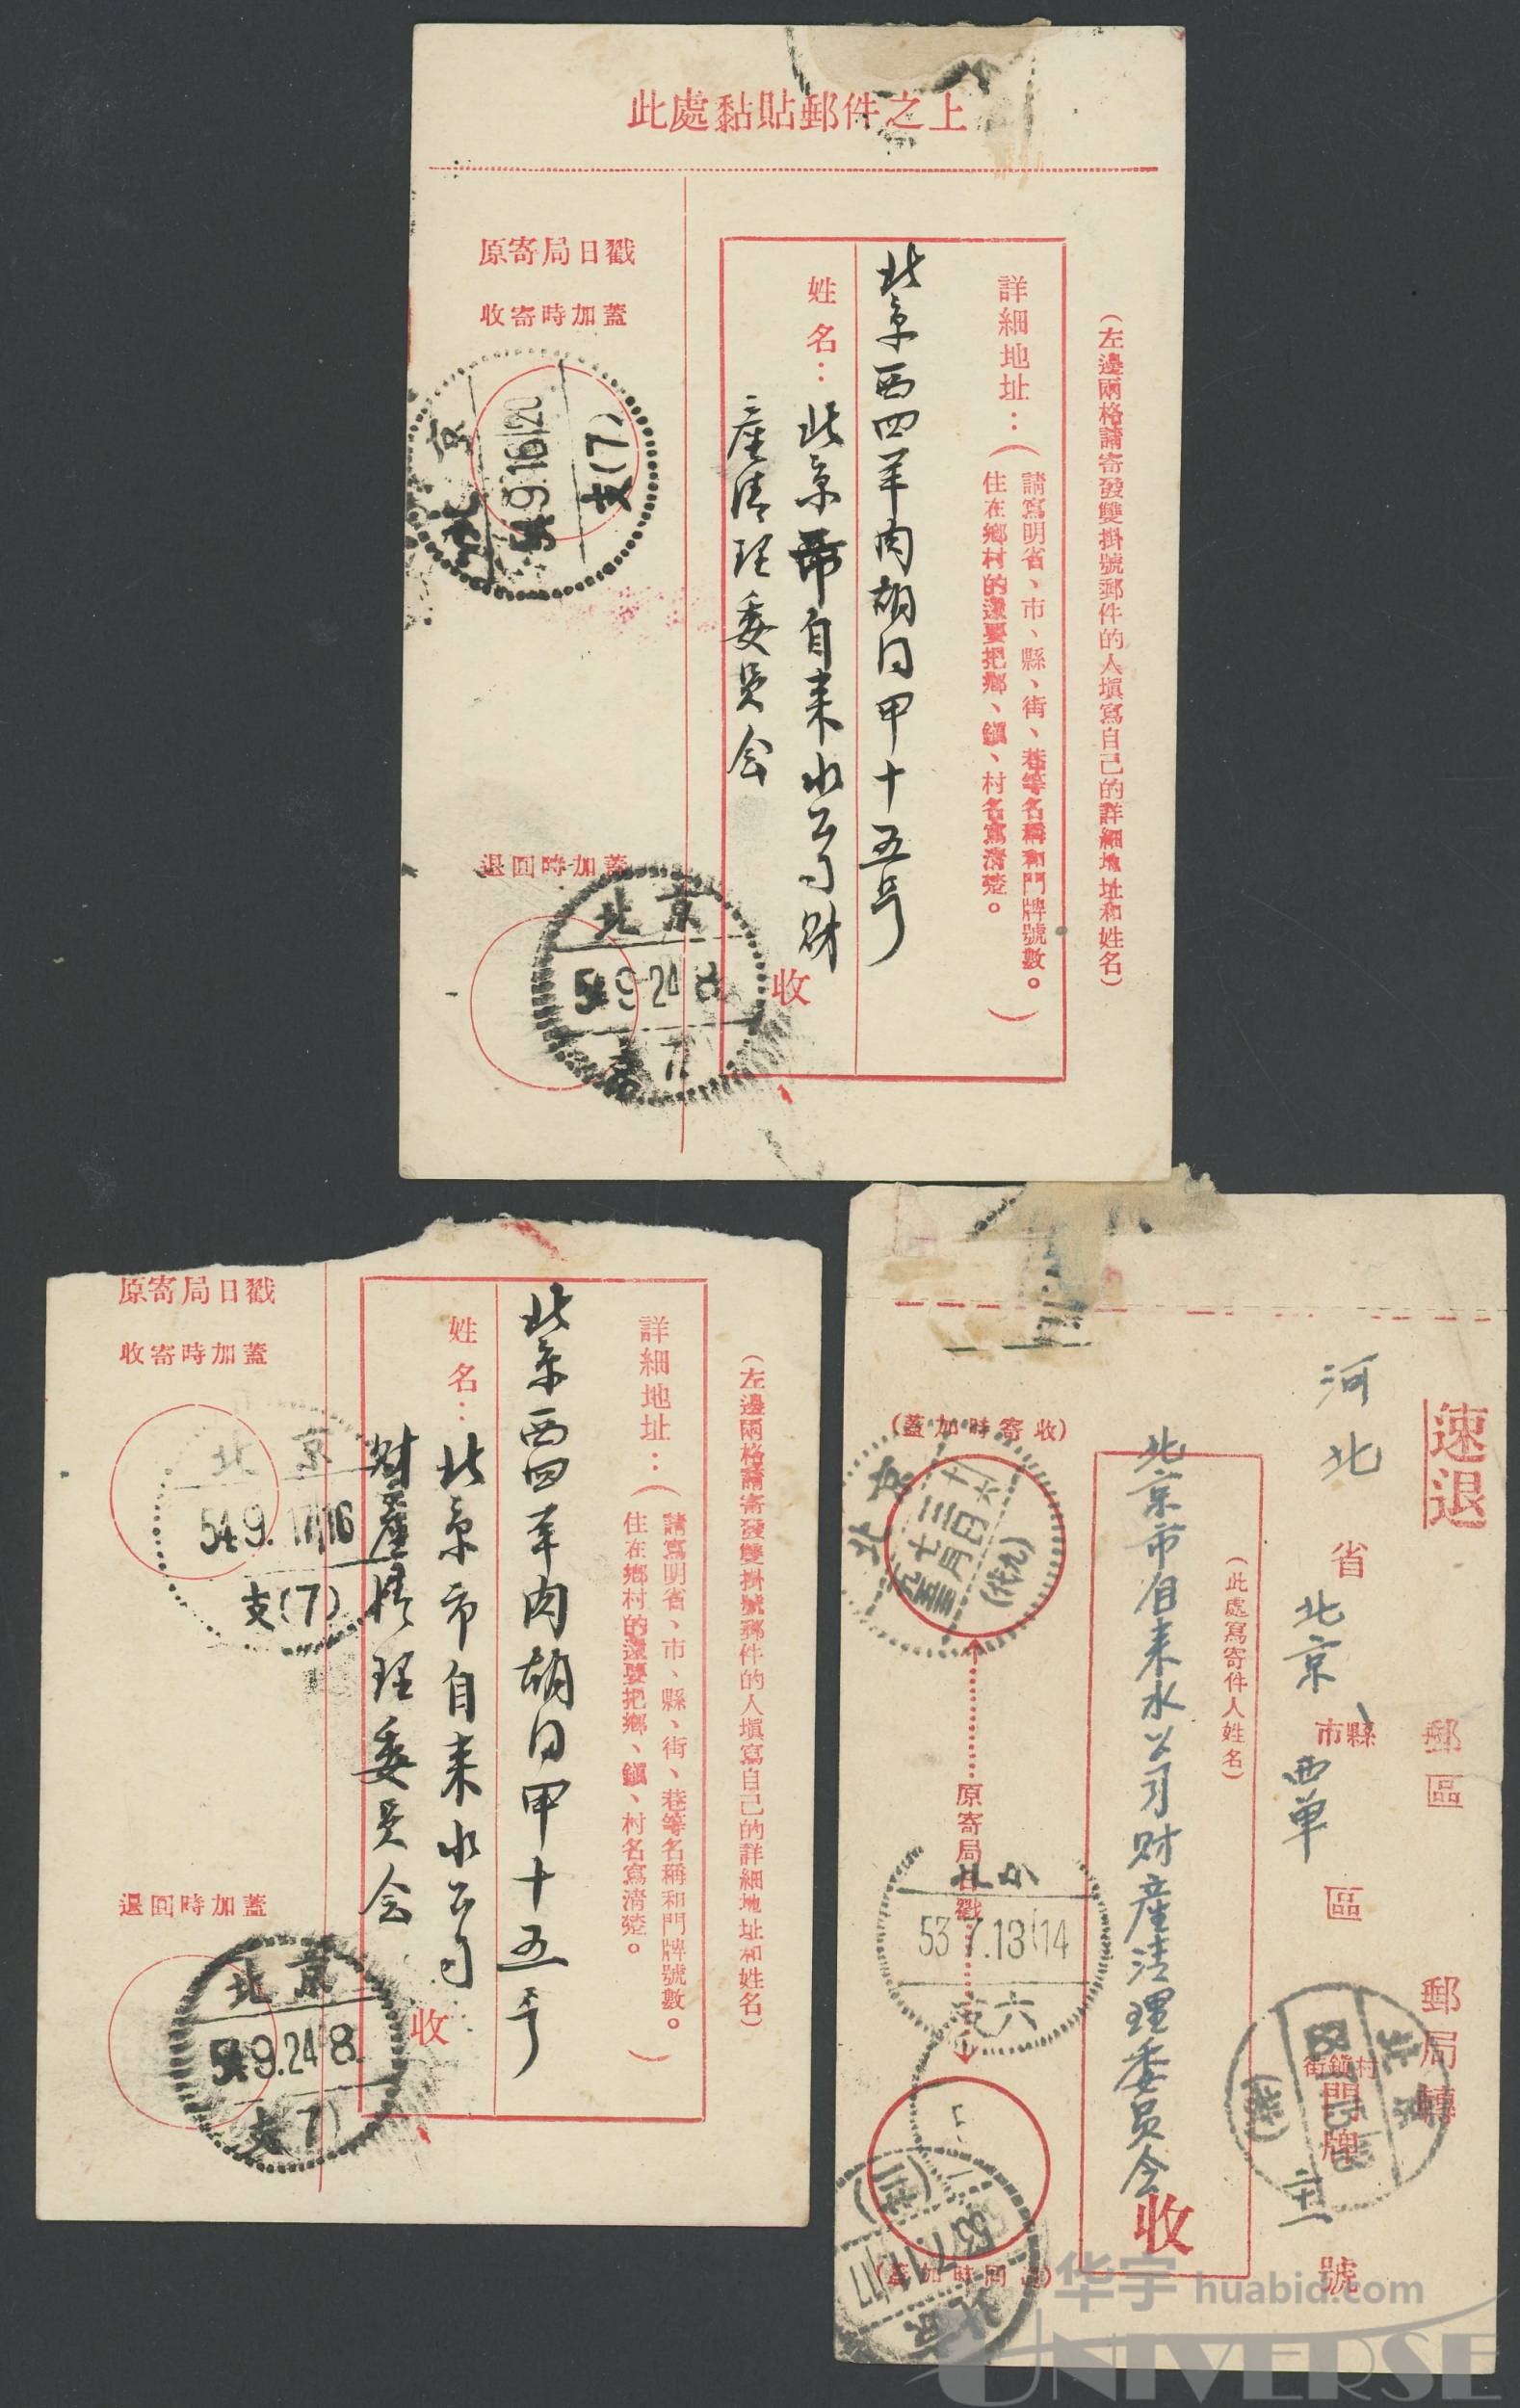 此處黏貼郵件之上
(左邊兩格請寄發雙掛號郵件的人填寫自己的詳細地址和姓名)
詳細地址：(請寫明省、市、縣、街、巷等名稱和門牌號數。
住在鄉村的還要把鄉、鎮、村名寫清楚。)
北京西四羊肉胡同甲十五号
姓名：北京市自来水公司财
産清理委員会
收
原寄局日戳
收寄時加蓋
北京
54.9.16 20
支(7)
退回時加蓋
北京
54.9.24 8
7
(左邊兩格請寄發雙掛號郵件的人填寫自己的詳細地址和姓名)
詳細地址：(請寫明省、市、縣、街、巷等名稱和門牌號數。
住在鄉村的還要把鄉、鎮、村名寫清楚。)
北京西四羊肉胡同甲十五号
姓名：北京市自来水公司
财産清理委員会
收
原寄局日戳
收寄時加蓋
北京
54.9.17 16
支(7)
退回時加蓋
北京
54.9.24 8
支7
速退
郵區
郵局轉
河北省北京市縣西单區
街鎮村
門牌
號
(此處寫寄件人姓名)
北京市自来水公司财産清理委員会
收
(收寄時加蓋)
北京
原寄局日戳
53.7.13 14
六
53.7.11 17
华宇 huabid.com
UNIVERSE